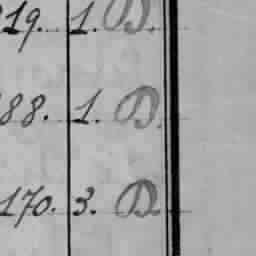 219. 1. D.
88. 1. D.
170. 3. D.